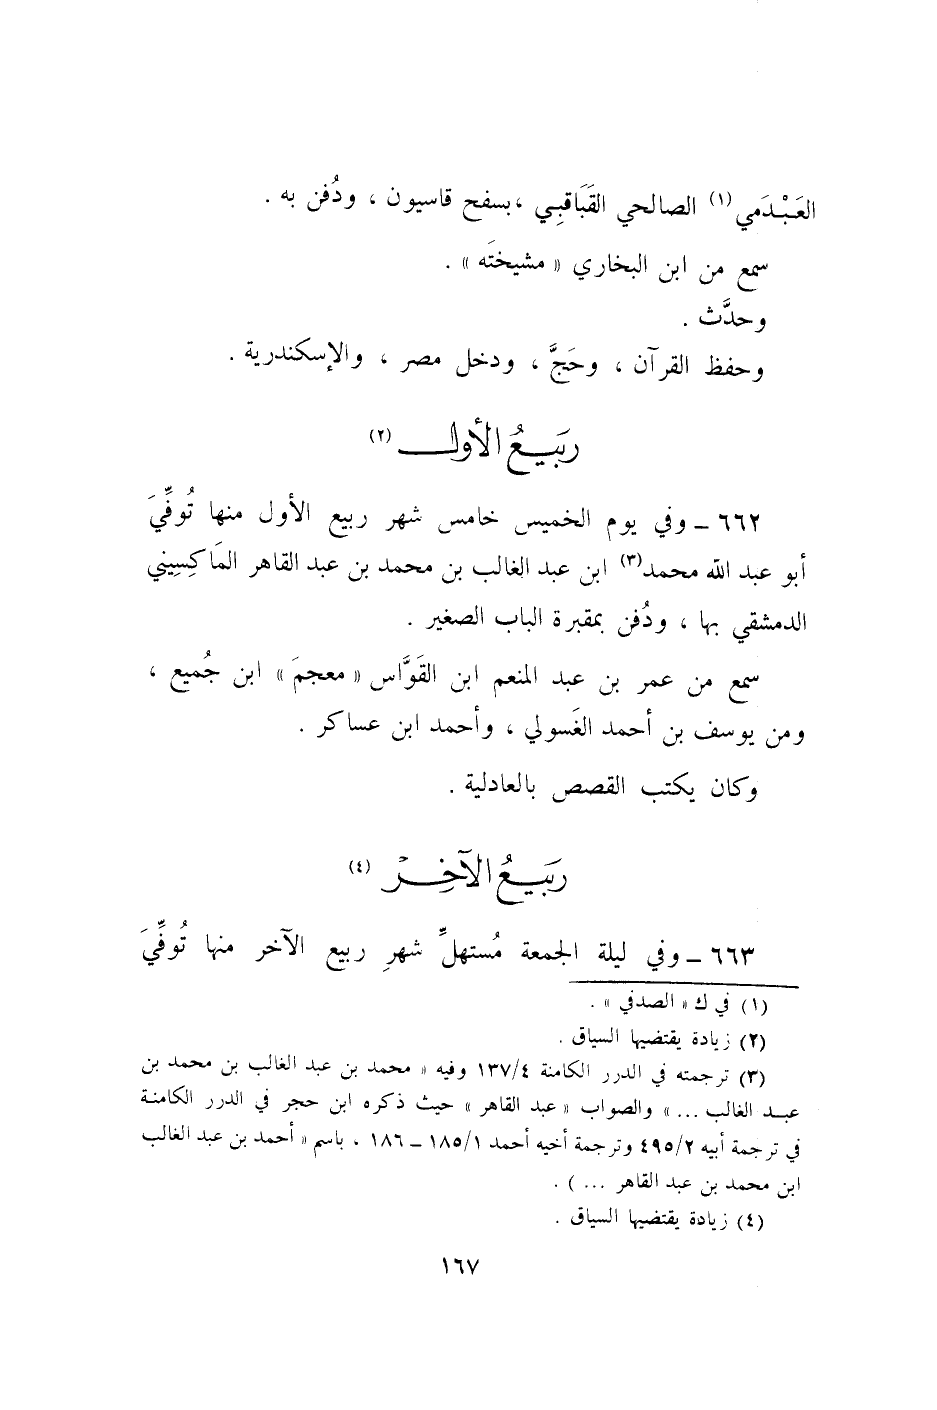 العَبْدَمي(١) الصالحي القَبَاقبي ،بسفح قاسيون ، ودُفن به .
سمع من ابن البخاري « مشيختَه » .
وحدَّث .
وحفظ القرآن ، وحَجَّ ، ودخل مصر ، والإسكندرية .
ربَيعُ الأول (٢)
٦٦٢ ـ وفي يوم الخميس خامس شهر ربيع الأول منها تُوفِّيَ
أبو عبد الله محمد(٣) ابن عبد الغالب بن محمد بن عبد القاهر المَاكِسِيني
الدمشقي بها ، ودُفن بمقبرة الباب الصغير .
سمع من عمر بن عبد المنعم ابن القَوَّاس « معجمَ » ابن جُميع ،
ومن يوسف بن أحمد الغَسولي ، وأحمد ابن عساكر .
وكان يكتب القصص بالعادلية .
ربَيعُ الآخِر (٤)
٦٦٣ ـ وفي ليلة الجمعة مُستهلِّ شهرِ ربيع الآخر منها تُوفِّيَ
(١) في ك « الصدفي » .
(٢) زيادة يقتضيها السياق .
(٣) ترجمته في الدرر الكامنة ١٣٧/٤ وفيه « محمد بن عبد الغالب بن محمد بن
عبد الغالب ... » والصواب « عبد القاهر » حيث ذكره ابن حجر في الدرر الكامنة
في ترجمة أبيه ٤٩٥/٢ وترجمة أخيه أحمد ١٨٥/١ ـ ١٨٦ ، باسم « أحمد بن عبد الغالب
ابن محمد بن عبد القاهر ... ) .
(٤) زيادة يقتضيها السياق .
١٦٧